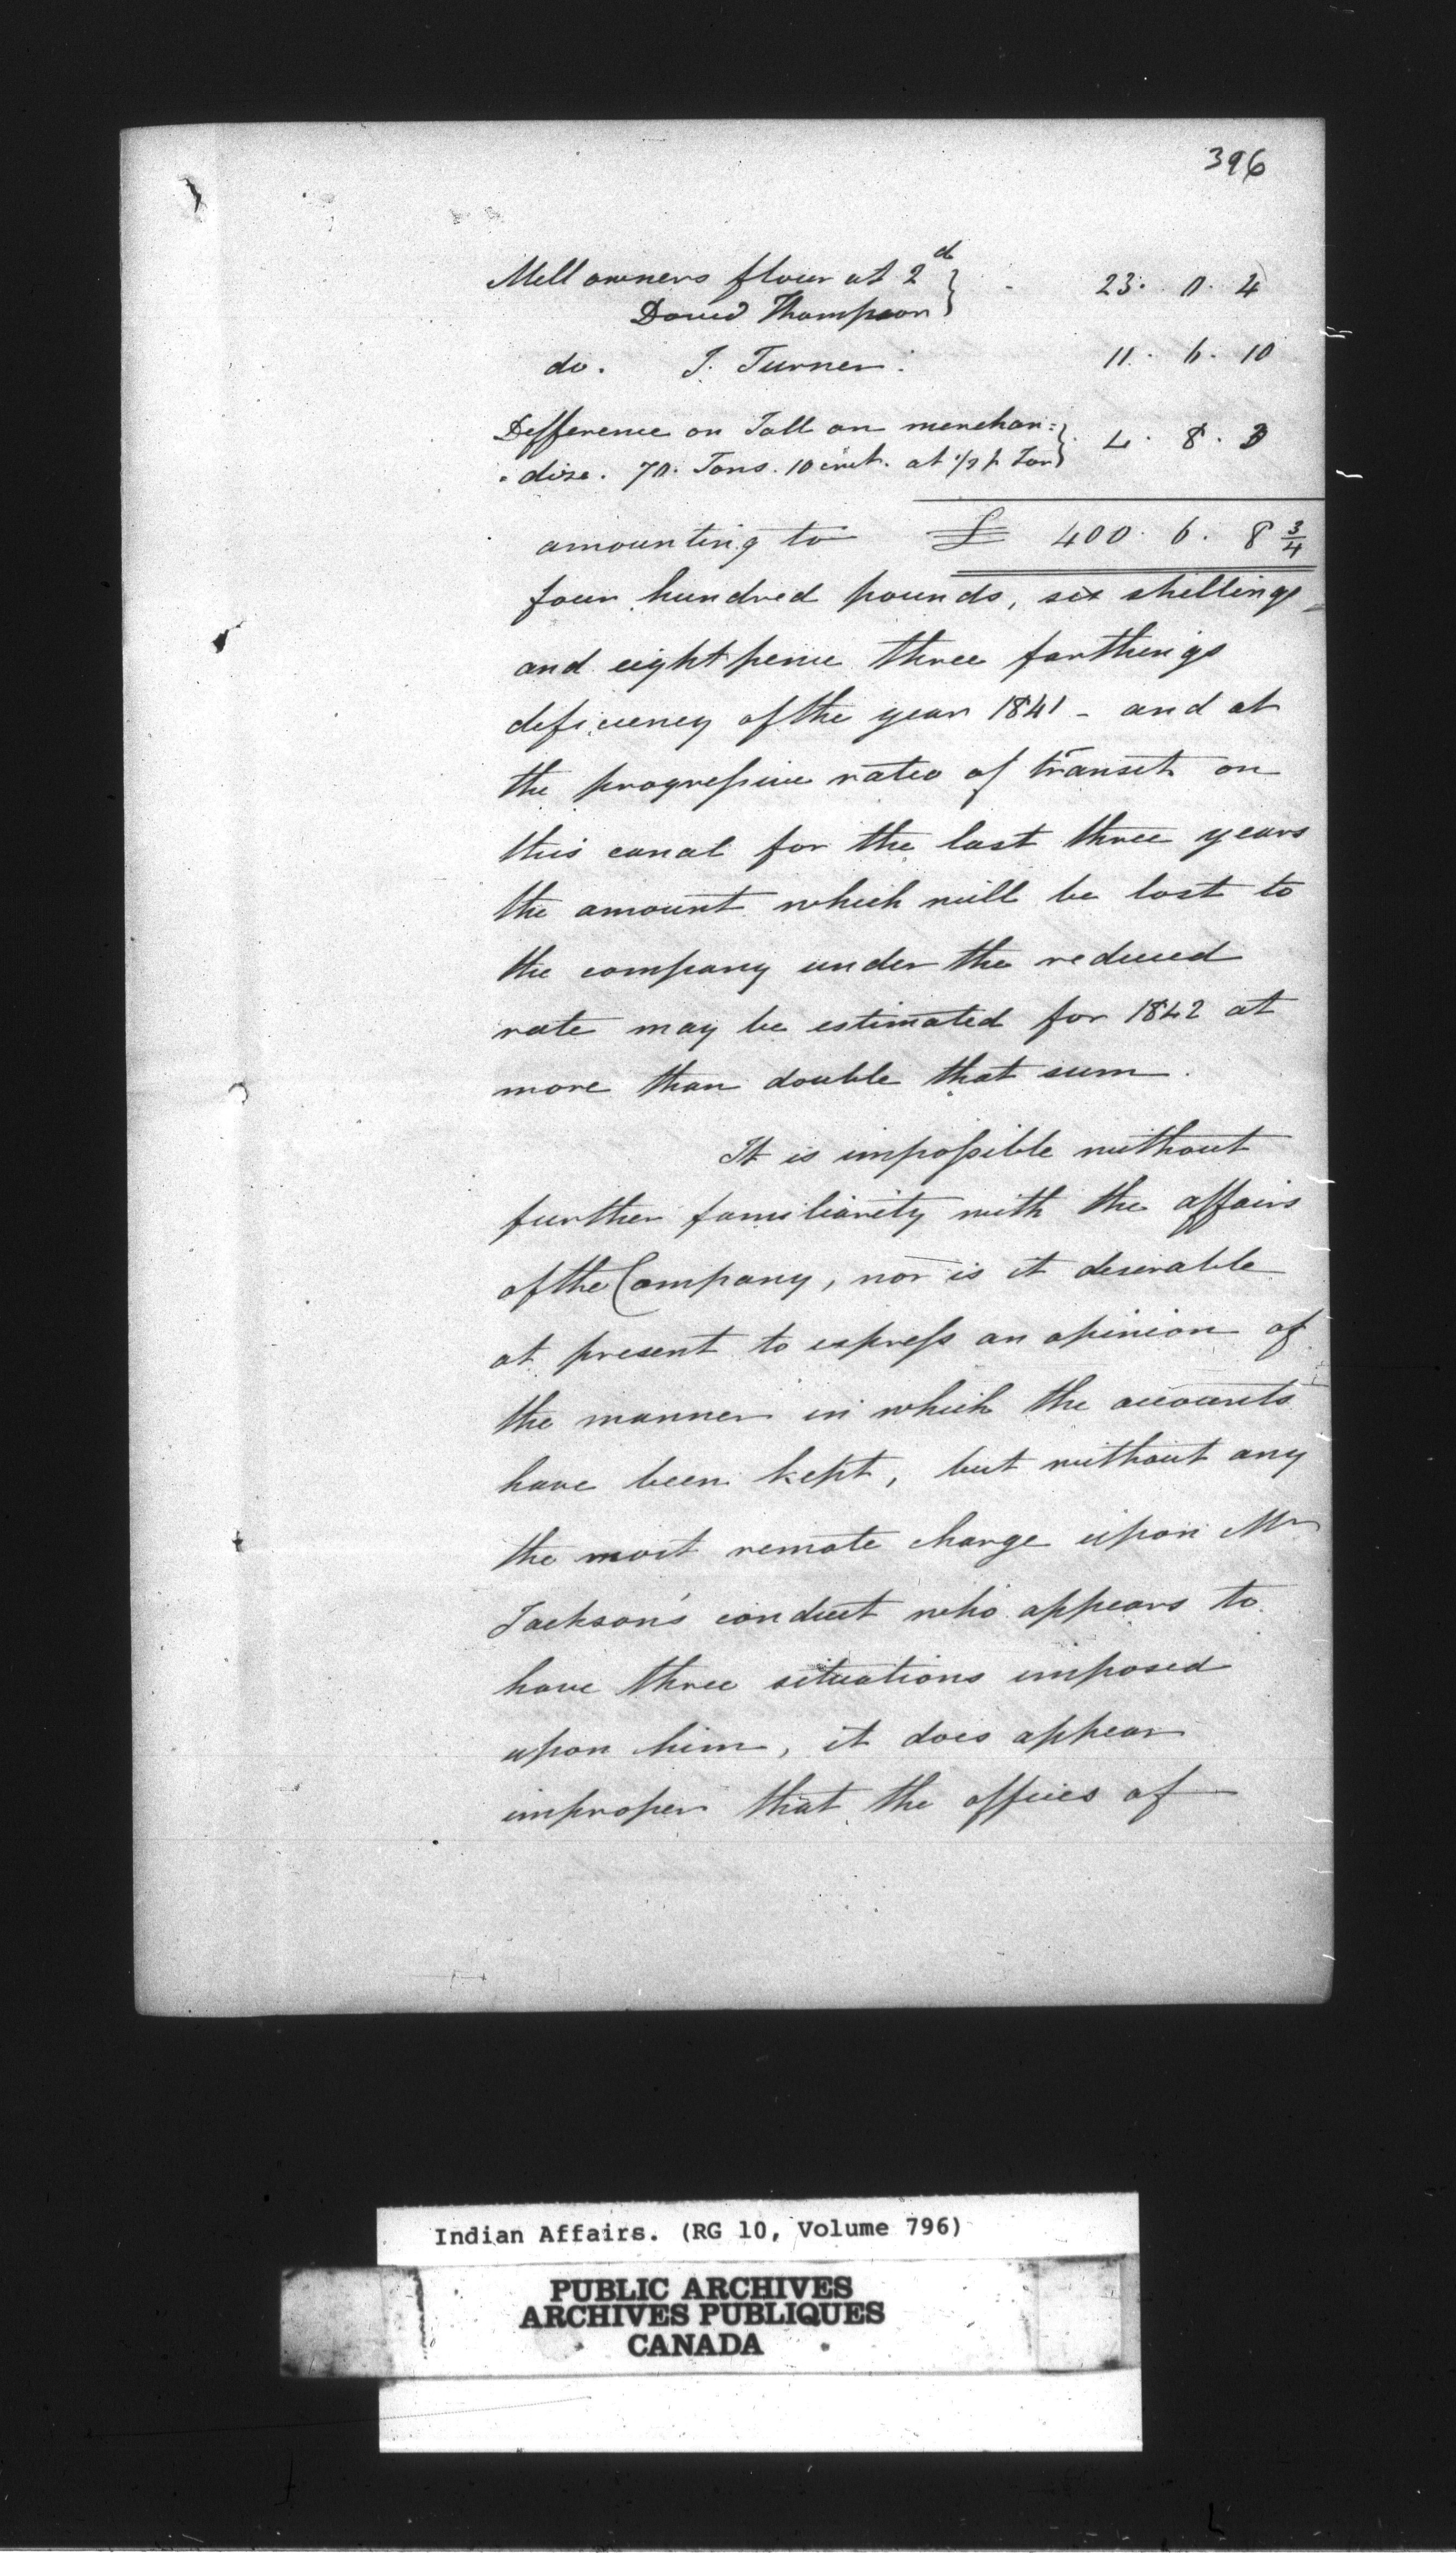 396
Mill owners flour at 2d } - 23. 0. 4
David Thompson
do. J. Turner. 11. 6. 10
Difference on Toll on merchan=
=dize. 70. Tons. 10 cwt. at 1/3 p Ton } 4. 8. 3
amounting to £ 400. 6. 8 3/4
four hundred pounds, six shillings
and eight pence three farthings
deficiency of the year 1841 - and at
the progressive ratio of transit on
this canal for the last three years
the amount which will be lost to
the company under the reduced
rate may be estimated for 1842 at
more than double that sum.
It is impossible without
further familiarity with the affairs
of the Company, nor is it desirable
at present to express an opinion of
the manner in which the accounts
have been kept, but without any
the most remote charge upon Mr
Jackson's conduct who appears to
have three situations imposed
upon him, it does appear
improper that the offices of
Indian Affairs. (RG 10, Volume 796)
PUBLIC ARCHIVES
ARCHIVES PUBLIQUES
CANADA